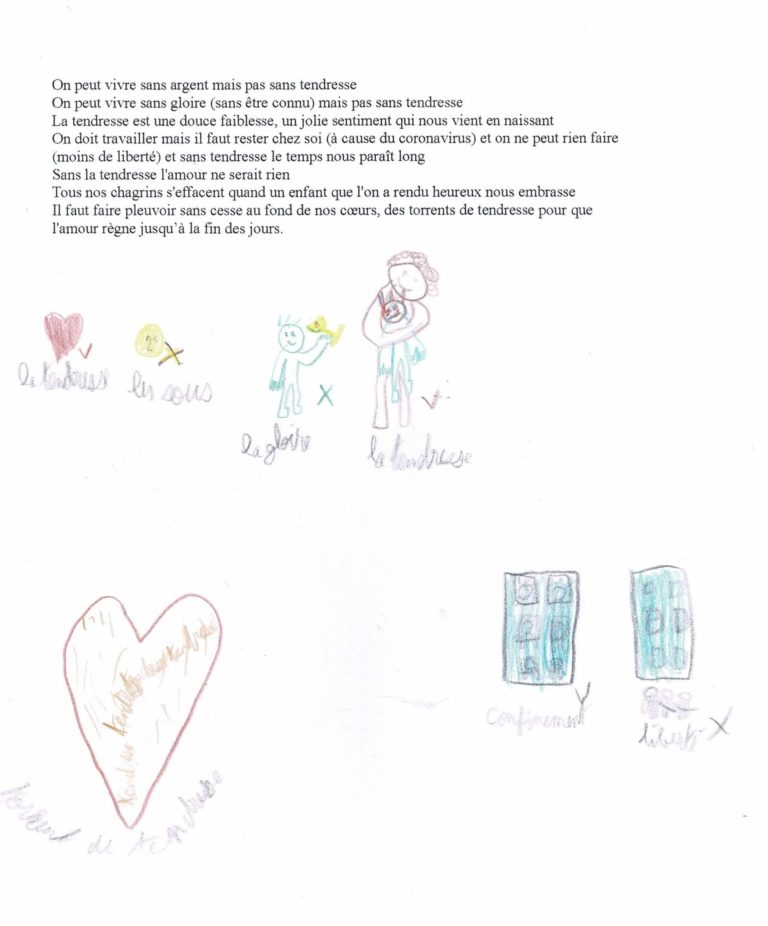 On peut vivre sans argent mais pas sans tendresse
On peut vivre sans gloire (sans être connu) mais pas sans tendresse
La tendresse est une douce faiblesse, un jolie sentiment qui nous vient en naissant
On doit travailler mais il faut rester chez soi (à cause du coronavirus) et on ne peut rien faire
(moins de liberté) et sans tendresse le temps nous paraît long
Sans la tendresse l'amour ne serait rien
Tous nos chagrins s'effacent quand un enfant que l'on a rendu heureux nous embrasse
Il faut faire pleuvoir sans cesse au fond de nos cœurs, des torrents de tendresse pour que
l'amour règne jusqu'à la fin des jours.
la tendresse
les sous
la gloire
la tendresse
confinement
liberté
de tendresse